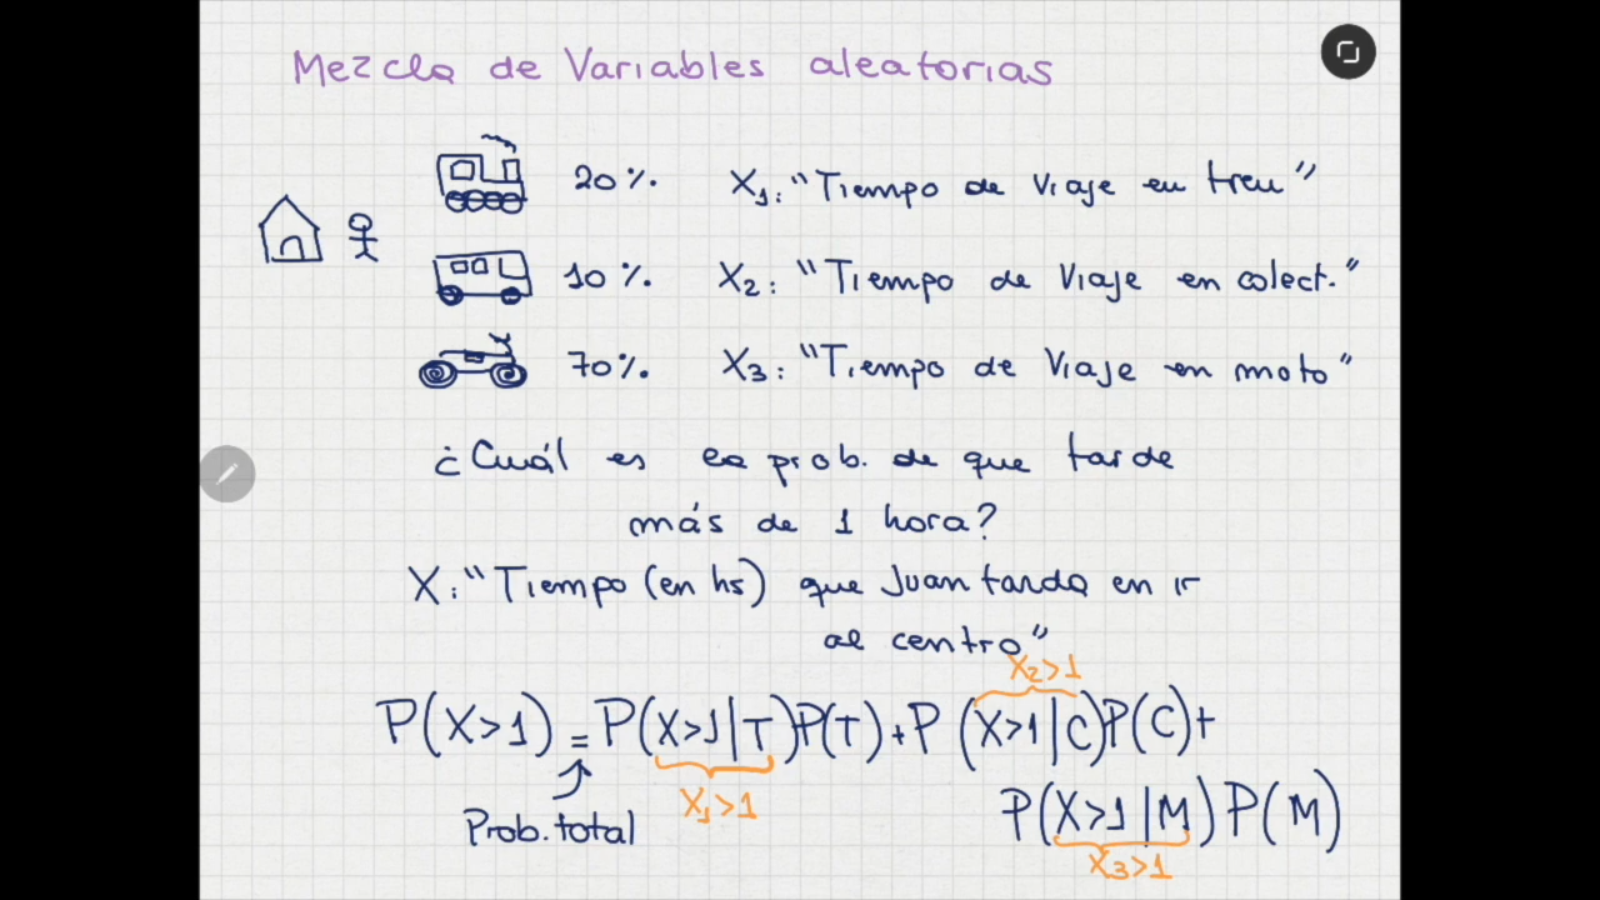 Mezcla de Variables aleatorias
20% X₁: "Tiempo de Viaje en tren"
10% X₂: "Tiempo de Viaje en colect."
70% X₃: "Tiempo de Viaje en moto"
¿Cuál es la prob. de que tarde
más de 1 hora?
X: "Tiempo (en hs) que Juan tarda en ir
al centro"
X₂>1
P(X>1) = P(X>1|T)P(T) + P(X>1|C)P(C) +
X₁>1
Prob. total
P(X>1|M)P(M)
X₃>1